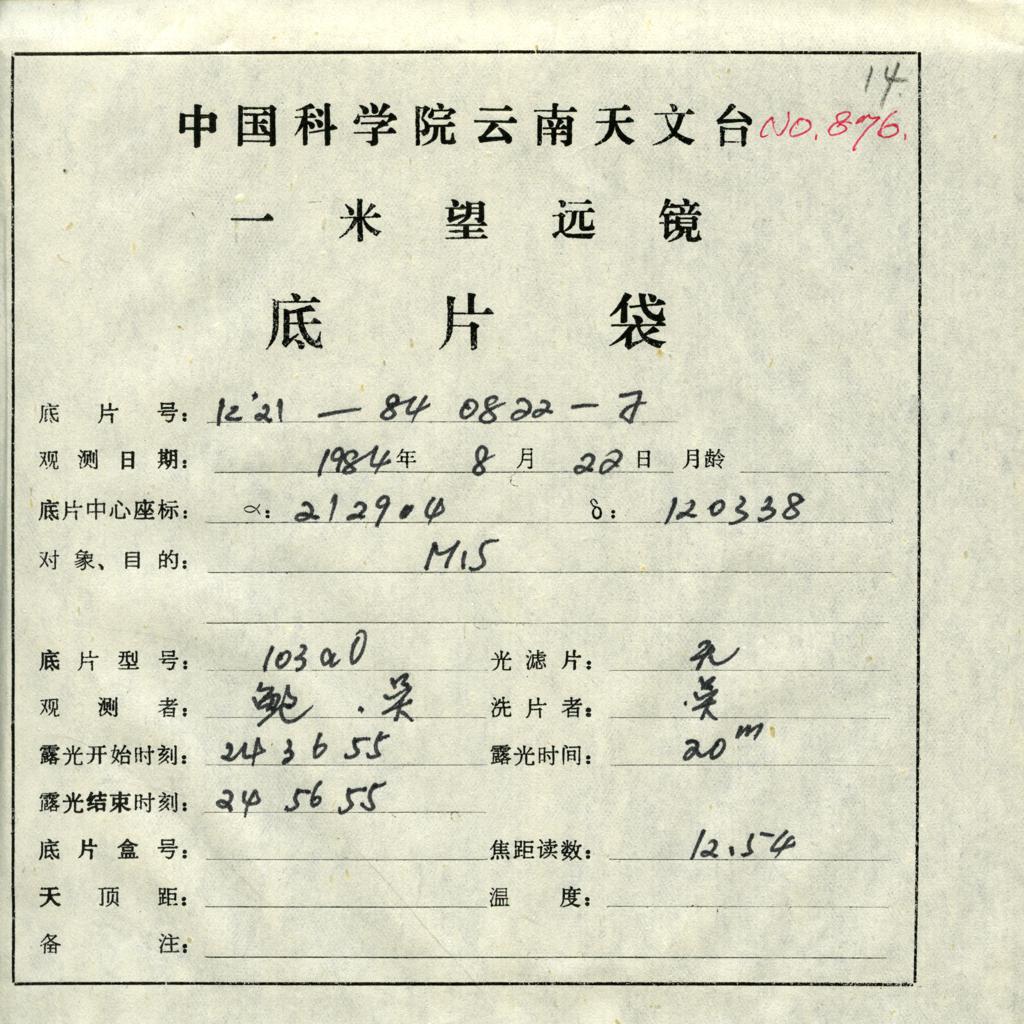 14.
中国科学院云南天文台 NO.876.
一米望远镜
底片袋
底片号: 12°21 — 84 0822 — 7
观测日期: 1984年 8月 22日 月龄
底片中心座标: α: 212904 δ: 120338
对象、目的: M15
底片型号: 103aO 光滤片: 无
观测者: 鲍.吴 洗片者: 吴
露光开始时刻: 24 36 55 露光时间: 20m
露光结束时刻: 24 56 55
底片盒号: 焦距读数: 12.54
天顶距: 温度:
备注: